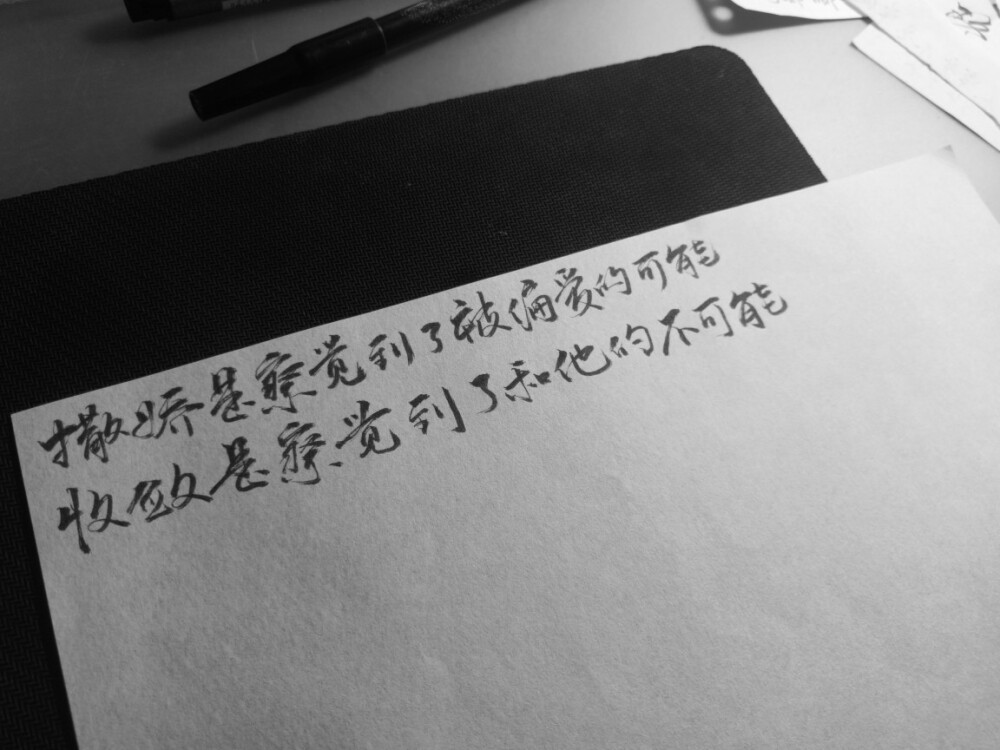 撒娇是察觉到了被偏爱的可能
收敛是察觉到了和他的不可能